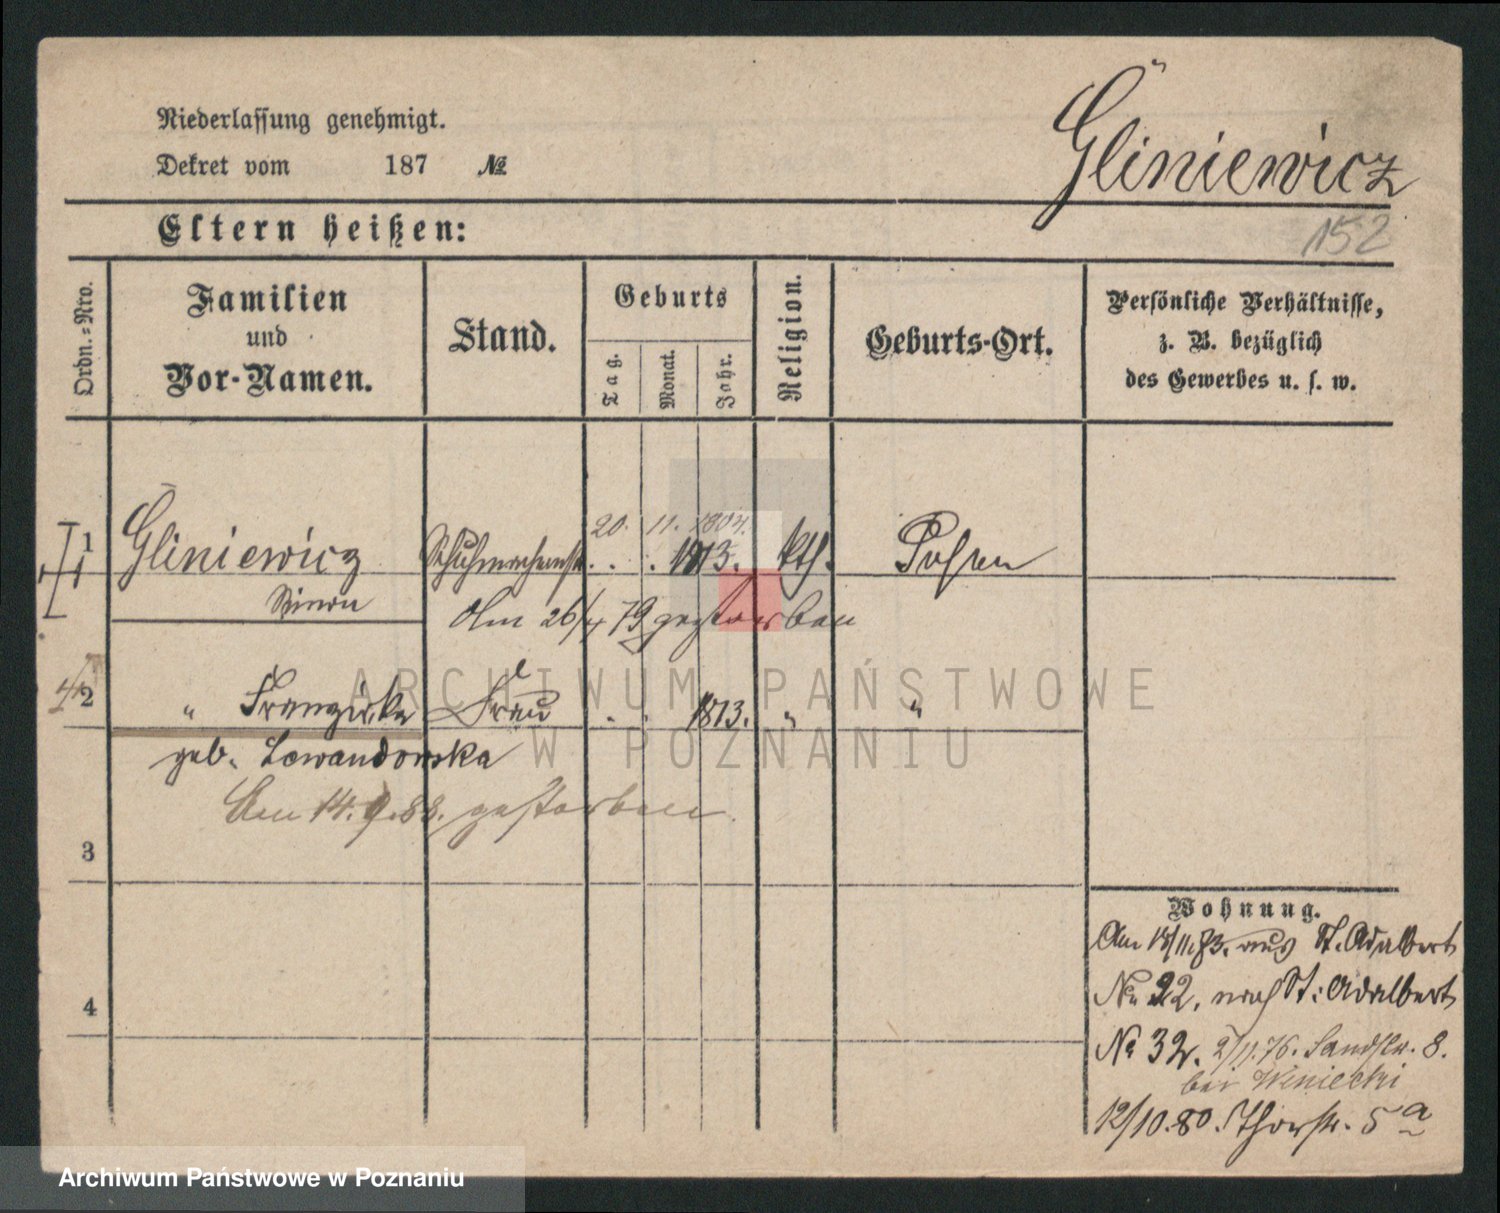 Gliniewicz
Niederlassung genehmigt.
Dekret vom 187 №
152
Eltern heißen:
Ordn.=Nro.
Familien
und
Vor-Namen.
Stand.
Geburts
Tag.
Monat.
Jahr.
Religion.
Geburts-Ort.
Persönliche Verhältnisse,
z. B. bezüglich
des Gewerbes u. s. w.
20. 11. 1804.
1 Gliniewicz Schuhmacherm 1813. kth. Posen
Simon
Am 26/4 79 gestorben
2 " Franziska Frau 1813. " "
geb. Lewandowska
Am 14.9.88. gestorben.
3
4
Wohnung.
Am 18/11.73. aus St. Adalbert
No 22, nach St. Adalbert
No 32. 2/11.76. Sandstr. 8.
bei Winiecki
12/10.80. Thorstr. 5 a
ARCHIWUM PAŃSTWOWE
W POZNANIU
Archiwum Państwowe w Poznaniu